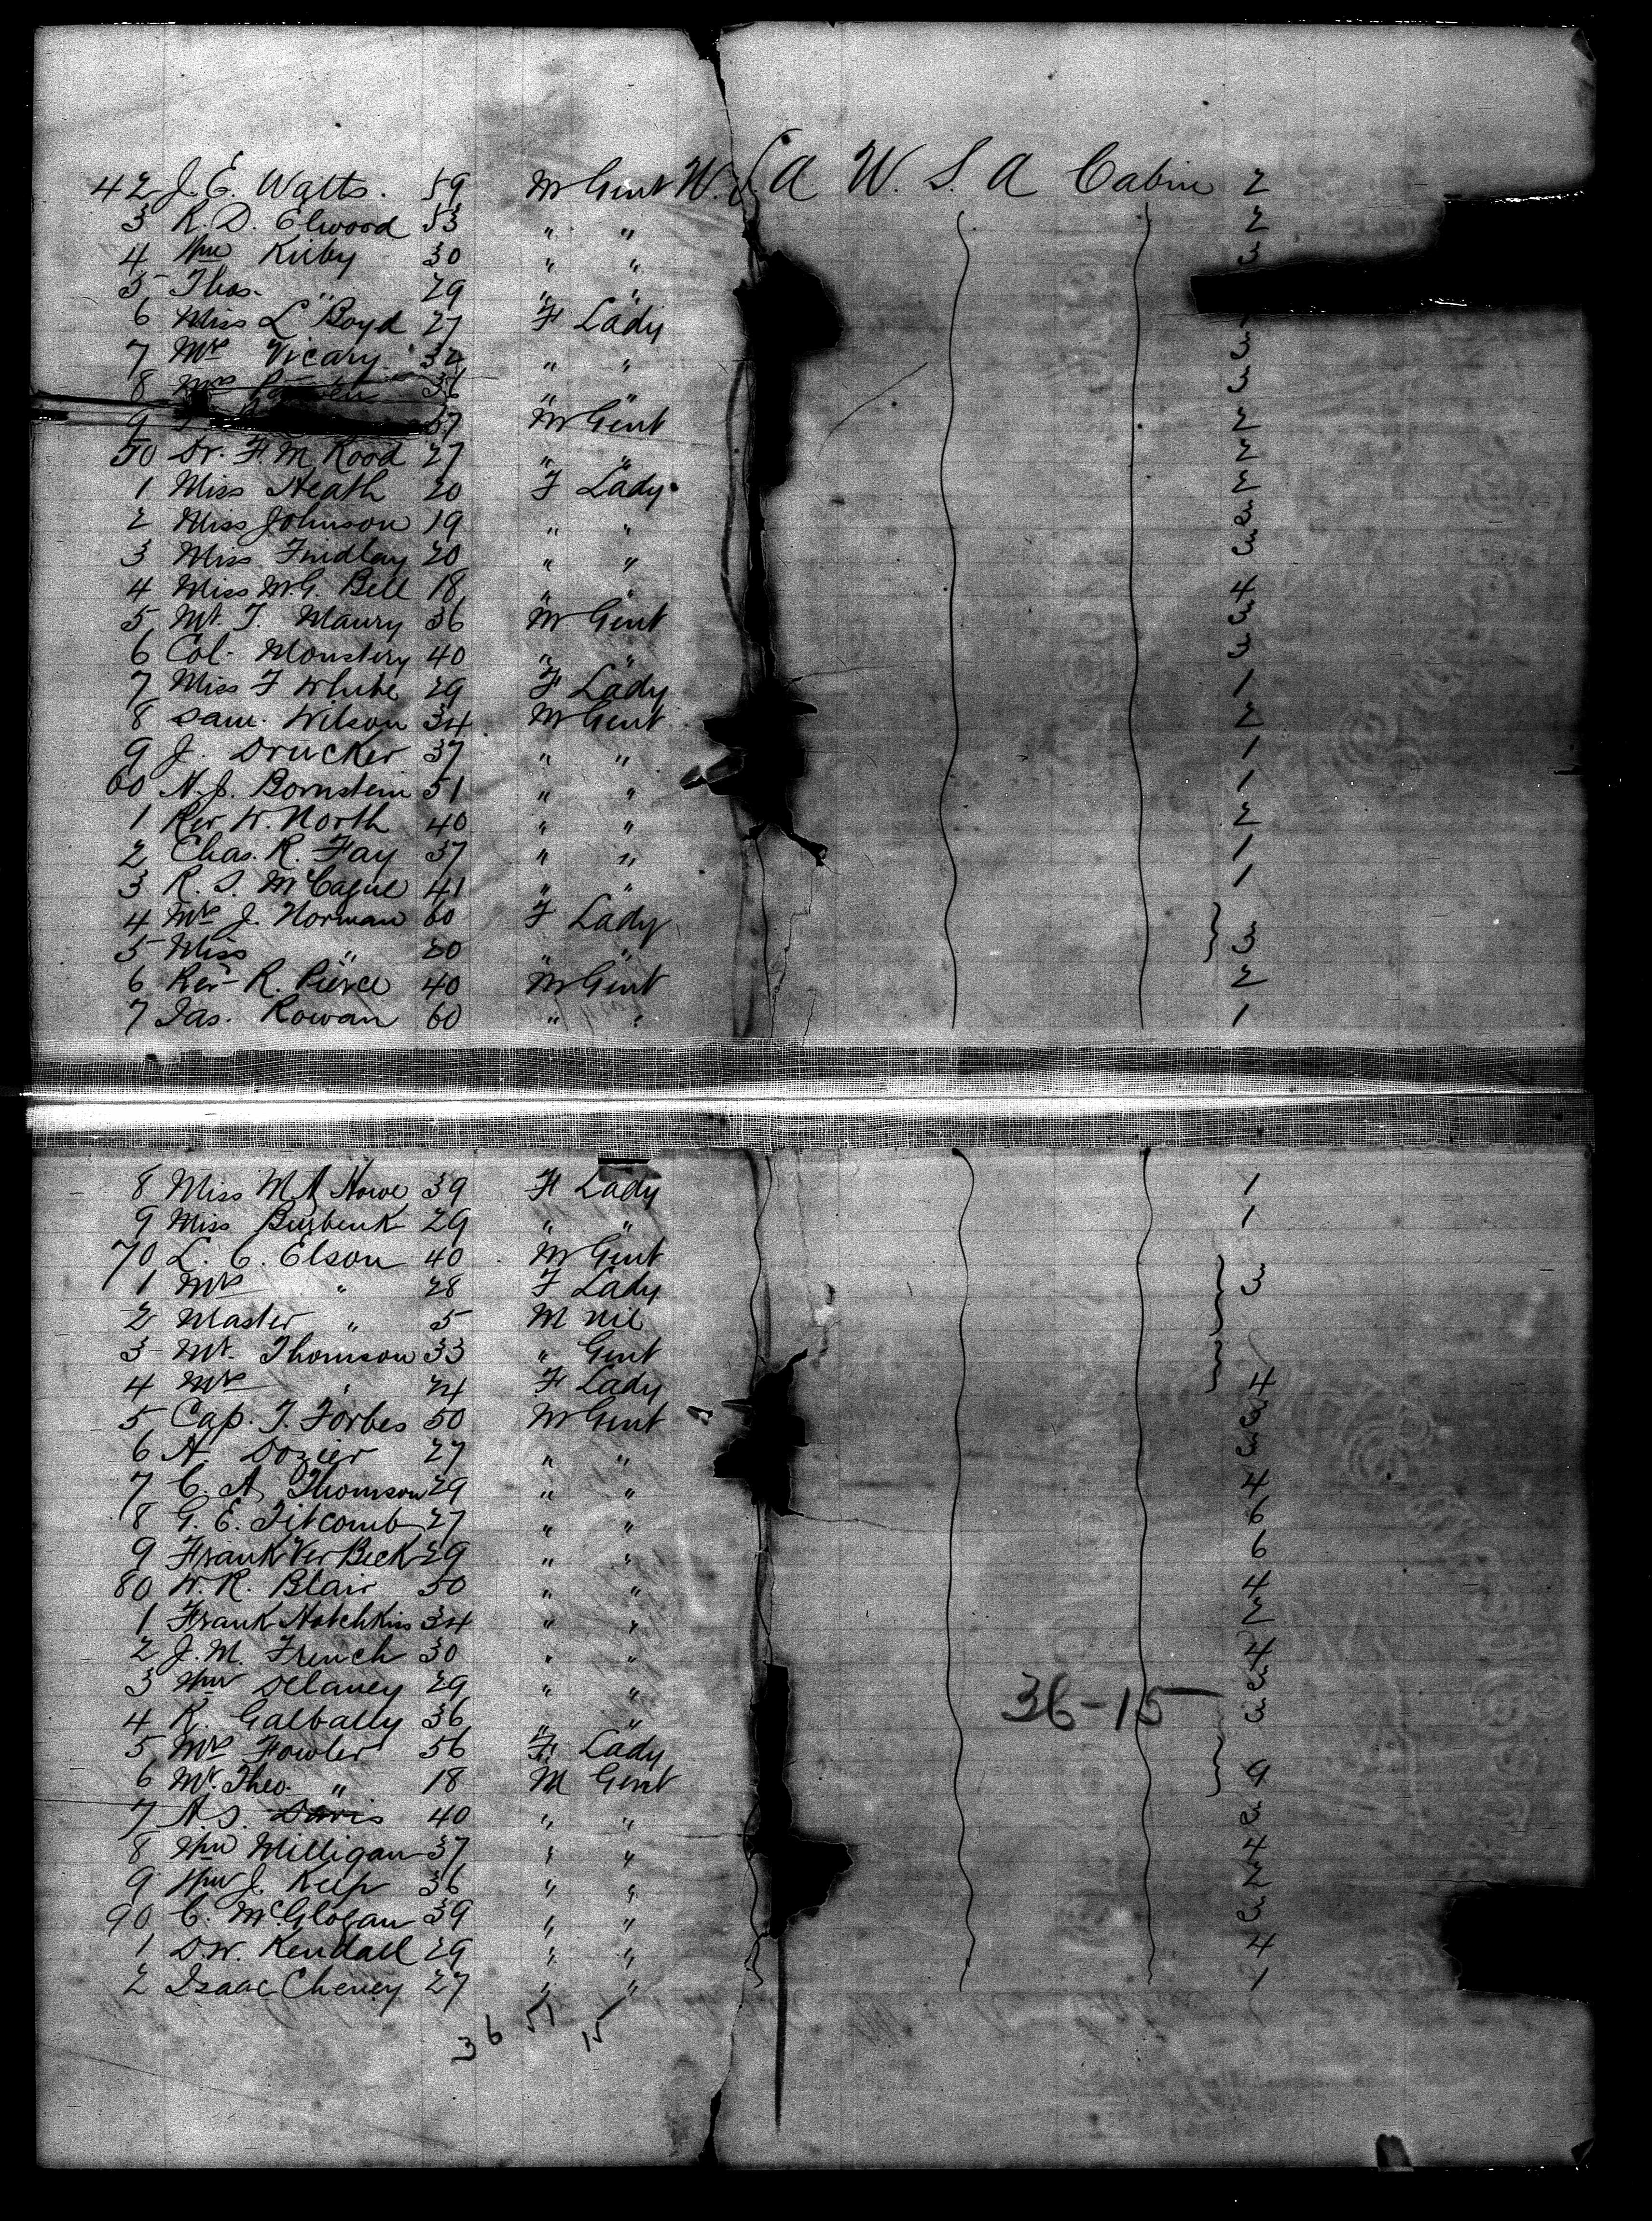 42 J. E. Watts. 59 M Gent U.S.A U.S.A Cabin 2
3 R. D. Elwood 53 " " 2
4 Wm Kirby 30 " " 3
5 Thos. " 29 " "
6 Miss L Boyd 27 F Lady
7 Mrs Vicary 32 " " 3
8 Mrs 36 " " 3
9 37 M Gent 2
50 Dr. F. M Rood 27 " " 2
1 Miss Heath 20 F Lady 2
2 Miss Johnson 19 " " 3
3 Miss Findlay 20 " " 3
4 Miss M.G. Bell 18 " " 4
5 Mr. T. Maury 36 M Gent 3
6 Col. Monstery 40 " " 3
7 Miss F White 29 F Lady 1
8 Sam. Wilson 34 M Gent 2
9 J. Drucker 37 " " 1
60 H. J. Bornstein 51 " " 1
1 Rev W. North 40 " " 2
2 Chas. R. Fay 37 " " 1
3 R. S. McCague 41 " " 1
4 Mrs J. Norman 60 F Lady
5 Miss " 20 " " 3
6 Rev R. Pierce 40 M Gent 2
7 Jas. Rowan 60 " " 1
8 Miss M A Howe 39 F Lady 1
9 Miss Burbenk 29 " " 1
70 L. C. Elson 40 M Gent
1 Mrs " 28 F Lady 3
2 Master " 5 M nil
3 Mr. Thomson 33 " Gent
4 Mrs " 24 F Lady 4
5 Cap. T. Forbes 50 M Gent 3
6 A. Dozier 27 " " 3
7 C. A. Thomson 29 " " 4
8 G. E. Titcomb 27 " " 6
9 Frank Ver Beck 29 " " 6
80 W. R. Blair 50 " " 4
1 Frank Hotchkiss 34 " " 2
2 J. M. French 30 " " 4
3 Wm Delaney 29 " " 3
4 R. Galbally 36 " " 3
36-15
5 Mrs Fowler 56 F Lady
6 Mr. Theo. " 18 M Gent 9
7 A. S. Davis 40 " " 3
8 Wm Milligan 37 " " 4
9 Wm J. Keep 36 " " 2
90 C. McGlogan 39 " " 3
1 D. W. Kendall 29 " " 4
2 Isaac Cheney 27 " " 1
36 51 15